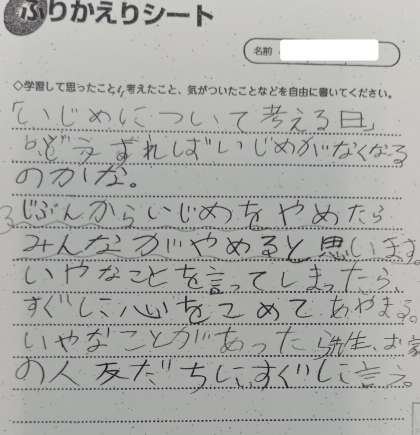 ふりかえりシート
名前
◇学習して思ったこと、考えたこと、気がついたことなどを自由に書いてください。
「いじめについて考える日」
どうすればいじめがなくなる
のかな。
じぶんからいじめをやめたら
みんながやめると思います。
いやなことを言ってしまったら、
すぐに心をこめてあやまる。
いやなことがあったら先生、お家
の人 友だちにすぐに言う。